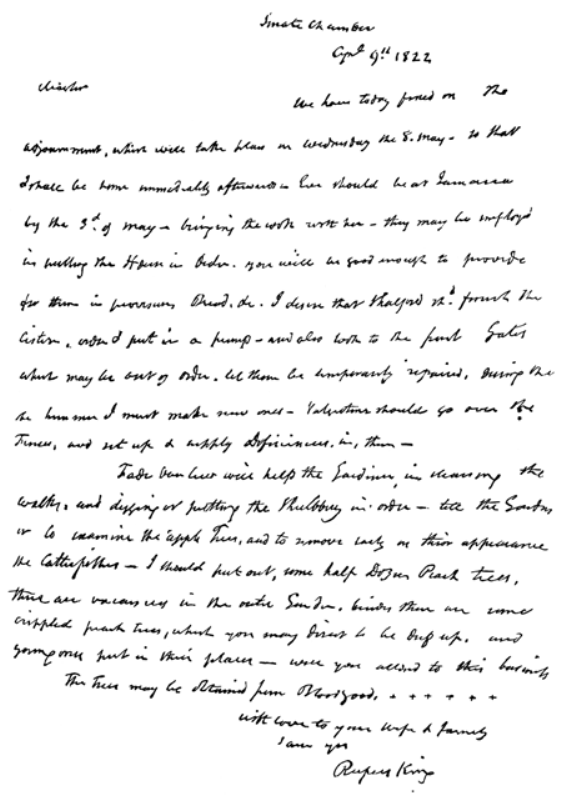 Senate Chamber
Apl 9th 1822
We have today fixed on the
adjournment, which will take place on Wednesday the 8. May - so that
I shall be home immediately afterwards - should be at Jamaica
by the 3d. of May - bringing the cook with her - they may be employd
in putting the House in Order. you will be good enough to provide
for them in provisions Bread. &c. I desire that Halford shd. finish the
Cistern, order & put in a pump - and also look to the front Gates
which may be out of order. let them be temporarily repaired, During the
Summer I must make new ones - Valentine should go over the
Fences, and set up & supply Deficiences, in, them -
will help the Gardiner, in cleaning the
walks, and digging or putting the Shrubbery in order - tell the Gardner
to examine the apple Trees, and to remove early on their appearance
the Catterpillars - I should put out, some half Dozen Peach trees,
there are vacancies in the outer Garden. besides there are some
crippled peach trees, which you may direct to be dug up, and
young ones put in their places - will you attend to this business
The Trees may be obtained from Bloodgood. + + + + + +
with love to your wife & family
I am yrs
Rufus King